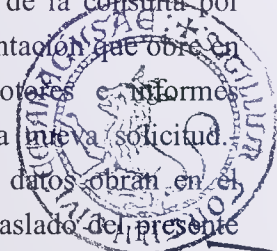 de la consulta por
ntación que obre en
otores e informes
a nueva solicitud.
datos obran en el
aslado del presente
SIGILLUM